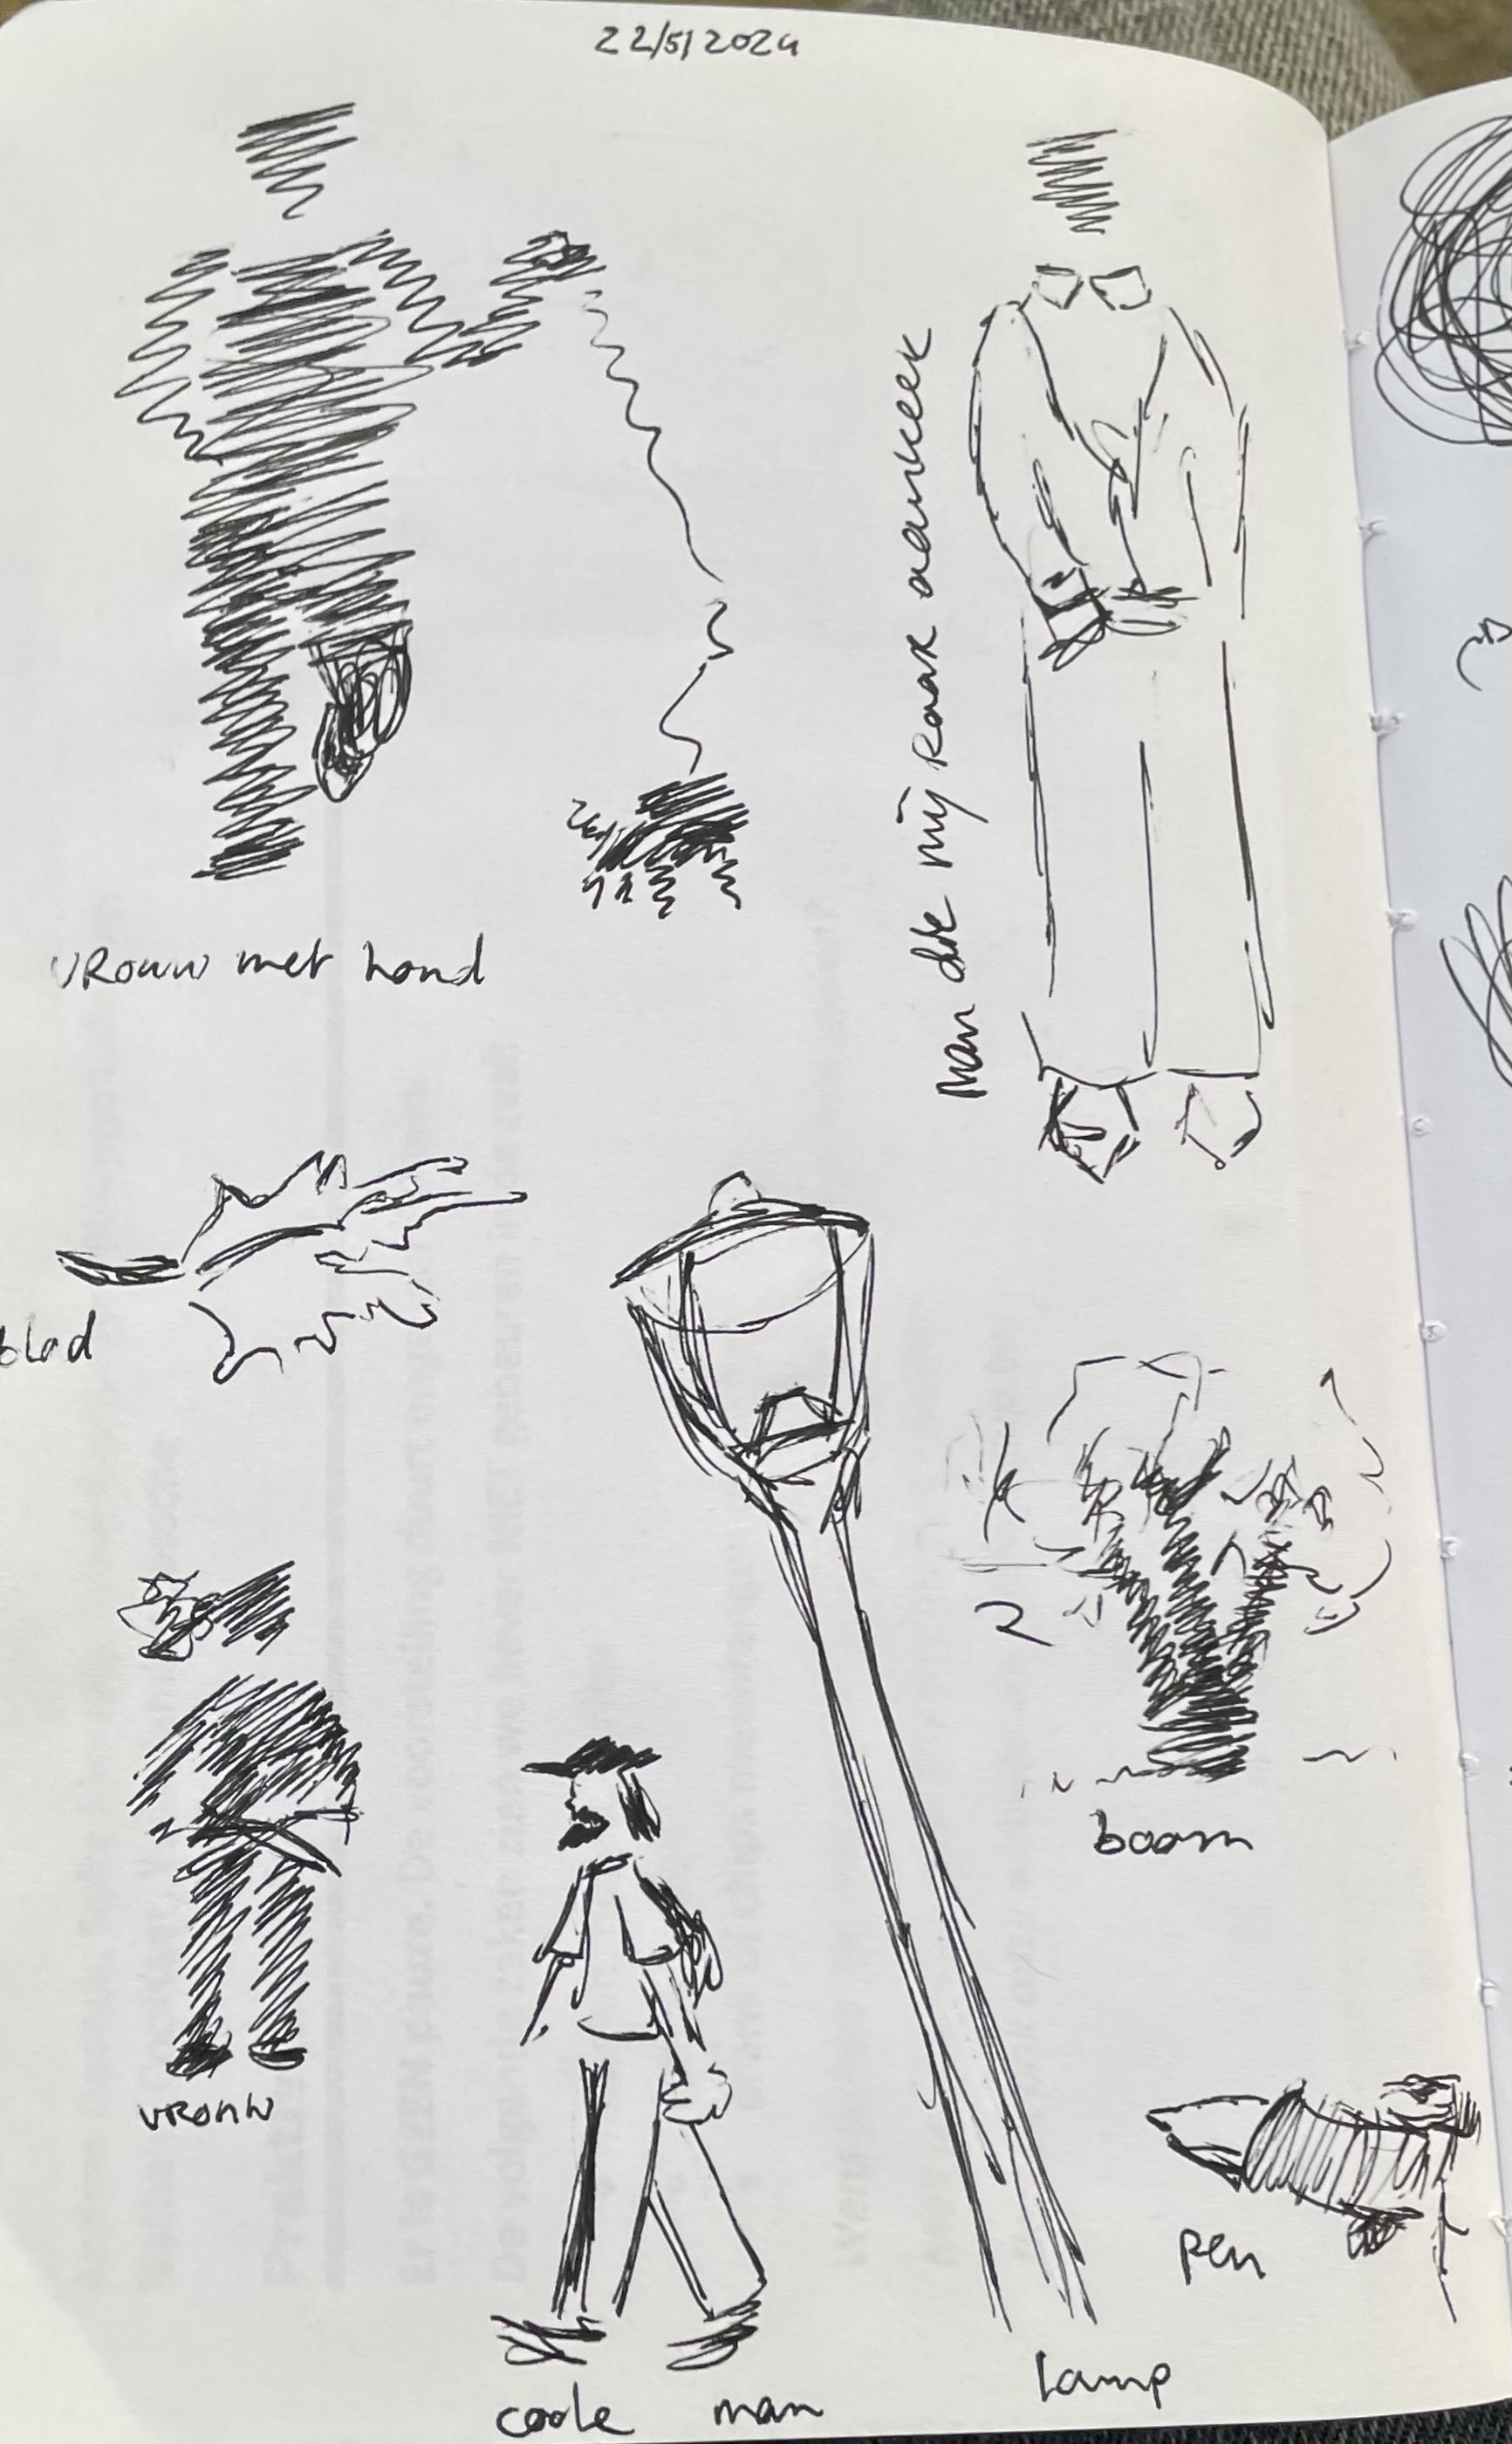 22/5/2024
vrouw met hond
man die mij raar aankeek
blad
boom
vrouw
pen
lamp
coole man